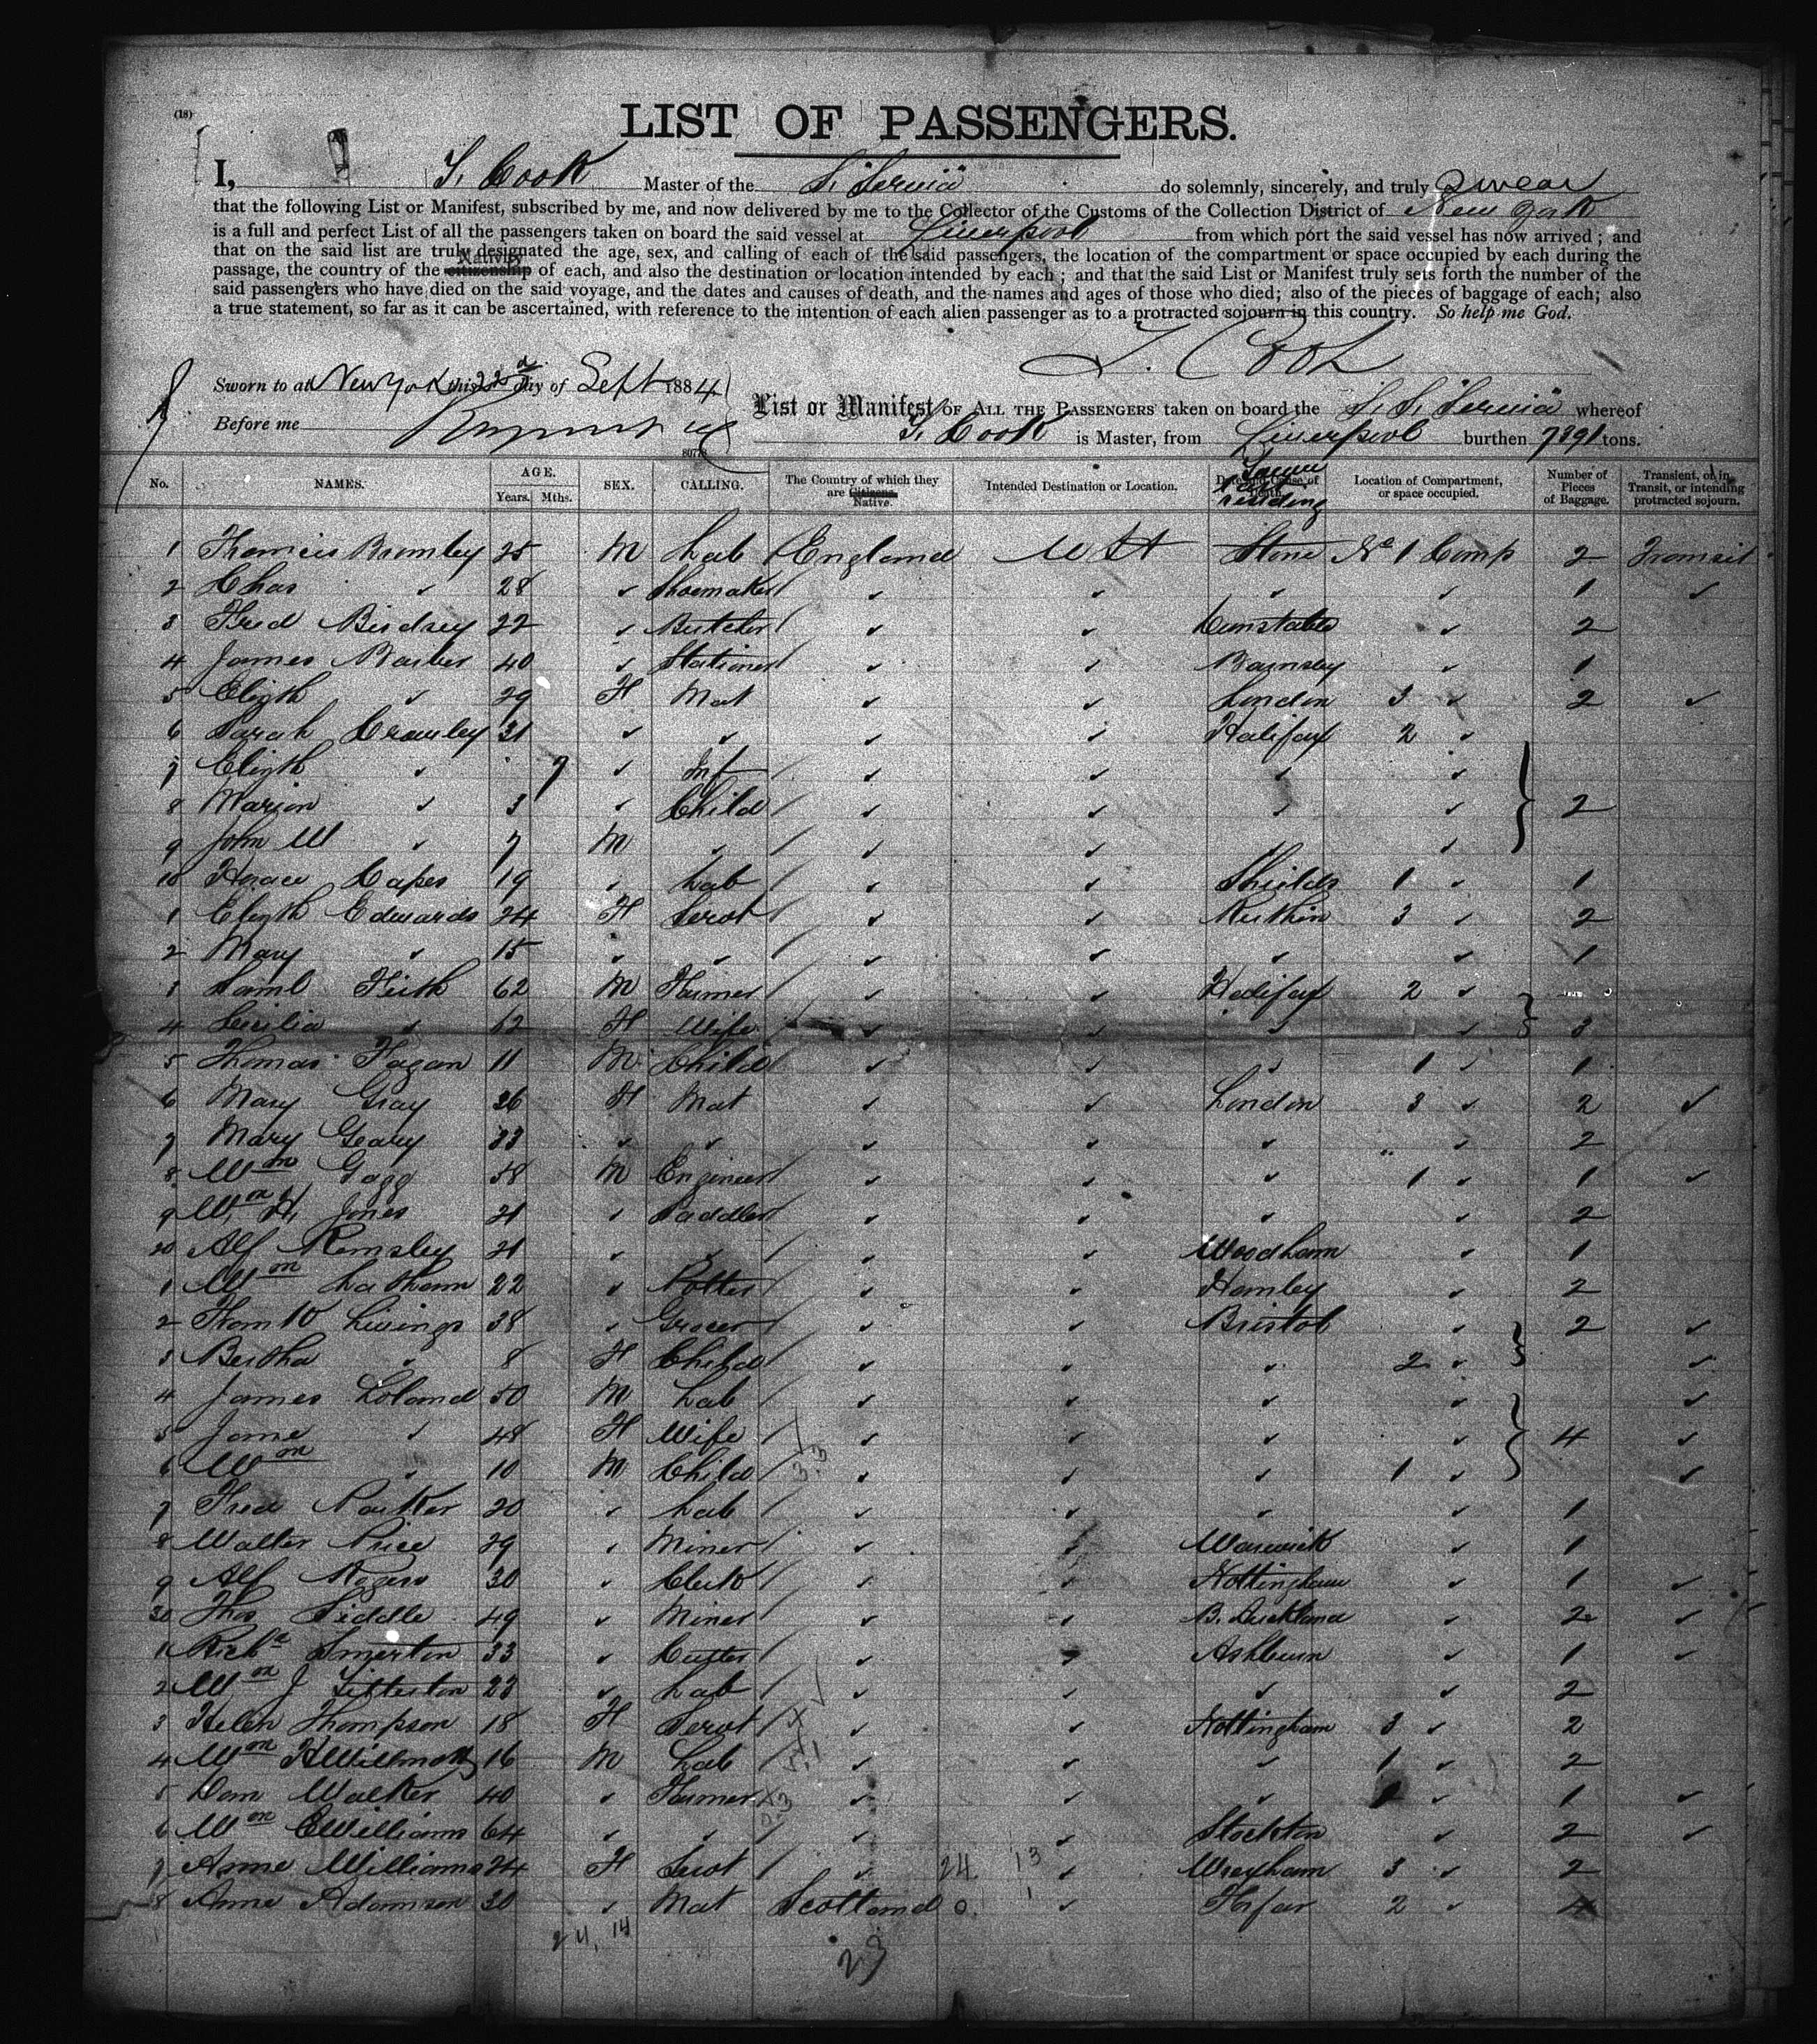 (18)
LIST OF PASSENGERS.
I, T. Cook Master of the S. "Servia" do solemnly, sincerely, and truly Swear
that the following List or Manifest, subscribed by me, and now delivered by me to the Collector of the Customs of the Collection District of New York
is a full and perfect List of all the passengers taken on board the said vessel at Liverpool from which port the said vessel has now arrived ; and
that on the said list are truly designated the age, sex, and calling of each of the said passengers, the location of the compartment or space occupied by each during the
Nativity
passage, the country of the citizenship of each, and also the destination or location intended by each ; and that the said List or Manifest truly sets forth the number of
said passengers who have died on the said voyage, and the dates and causes of death, and the names and ages of those who died; also of the pieces of baggage of each; also
a true statement, so far as it can be ascertained, with reference to the intention of each alien passenger as to a protracted sojourn in this country. So help me God.
T. Cook
Sworn to at New York this 22d day of Sept 1884
List or Manifest OF ALL THE PASSENGERS taken on board the S. S. "Servia" whereof
Before me
T. Cook is Master, from Liverpool burthen 7391 tons.
8077
No. NAMES. AGE. Years. Mths. SEX. CALLING. The Country of which they are Citizens. Native. Intended Destination or Location. Date and Cause of Death. residing Location of Compartment, or space occupied. Number of Pieces of Baggage. Transient, or in Transit, or intending protracted sojourn.
1 Thomas Bromley 25 M Lab England U St Stone No 1 Comp 2 Transit
2 Chas " 28 " Shoemaker " " " " 1 "
3 Fred Birdsey 22 " Butcher " " Dunstable " 2
4 James Barber 40 " Stationer " " Barnsley " 1
5 Elizth " 29 F Mat " " London 3 " 2 "
6 Sarah Crawley 31 " " " " Halifax 2 "
7 Elizth " 7 " Inf " " " "
8 Marion " 3 " Child " " " " 2
9 John W " 7 M " " " " "
10 Horace Capes 19 " Lab " " Shields 1 " 1
1 Elizth Edwards 24 F Servt " " Ruthin 3 " 2
2 Mary " 15 " " " " " " 1
3 Saml Firth 62 M Farmer " " Halifax 2 "
4 Cecilia " 62 F Wife " " " " 3
5 Thomas Fagan 11 M Child " " " 1 " 1
6 Mary Gray 36 F Mat " " London 3 " 2 "
7 Mary Geary 33 " " " " " " " 2
8 Wm Gagg 58 M Engineer " " " 1 " 1 "
9 Wm H. Jones 21 " Saddler " " " " 2
20 Alf Remsley 21 " " " " Woodham " 1
1 Wm Latham 22 " Potter " " Hanley " 2
2 Thom W Livings 38 " Grocer " " Bristol " 2 "
3 Bertha " 8 F Child " " " 2 " "
4 James Loland 50 M Lab " " " " "
5 Jane " 48 F Wife " " " " 4 "
6 Wm " 10 M Child " " " 1 " "
7 Fred Parker 20 " Lab " " " " 1
8 Walter Price 29 " Miner " " Warwick " 1
9 Alf Rogers 30 " Clerk " " Nottingham " 1 "
30 Thos Siddle 49 " Miner " " B. Auckland " 2 "
1 Richd Smerton 33 " Cutter " " Ashburn " 1 "
2 Wm J Titterton 23 " Lab " " " " 2
3 Helen Thompson 18 F Servt " " Nottingham 3 " 2
4 Wm H Willmott 16 M Lab " " " 1 " 2
5 Dom Walker 40 " Farmer " " " 1 " 1 "
6 Wm E Williams 64 " " " " Stockton " 2 "
7 Anne Williams 24 F Servt " 24. 13 " Wrexham 3 " 2
8 Anne Adamson 30 " Mat Scotland 0. 1 " Forfar 2 " 4
24, 14
29